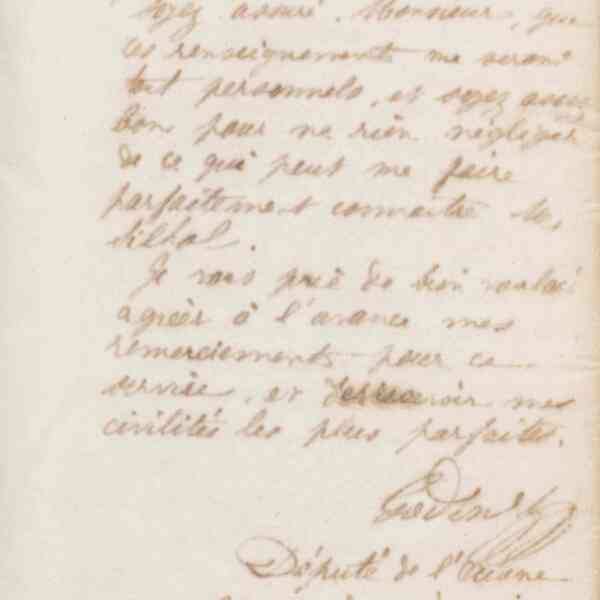 soyez assuré, Monsieur, que
ces renseignements me seront
tout personnels, et soyez assez
bon pour ne rien négliger
de ce qui peut me faire
parfaitement connaitre
Je vous prie de bien vouloir
agréer à l'avance mes
remerciements pour ce
service, et de recevoir mes
civilités les plus parfaites.
Godin
Député de l'Aisne